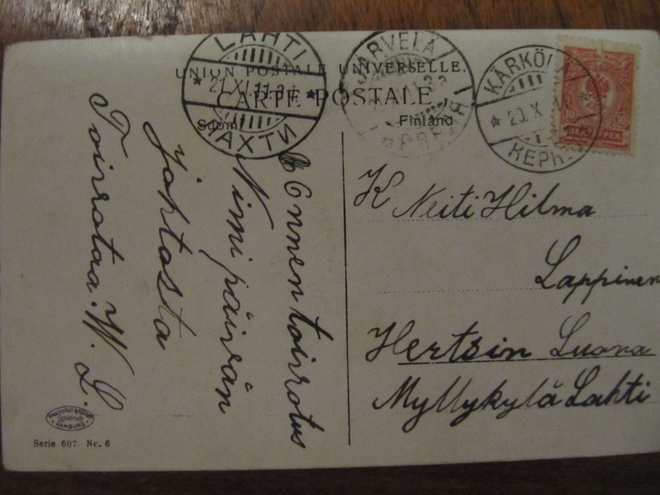 UNION POSTALE UNIVERSELLE.
CARTE POSTALE.
Suomi
Finland
LAHTI
21.XI.11
ЛАХТИ
JÄRVELÄ
KÄRKÖLÄ
20.X
10
PEN.
10
Onnentoivotus
Nimipäivän
johtosta
Toivottaa. W. L.
K Neiti Hilma
Lappinen
Hertsin Luona
Myllykylä Lahti
HAMBURG
Serie 607. Nr. 6